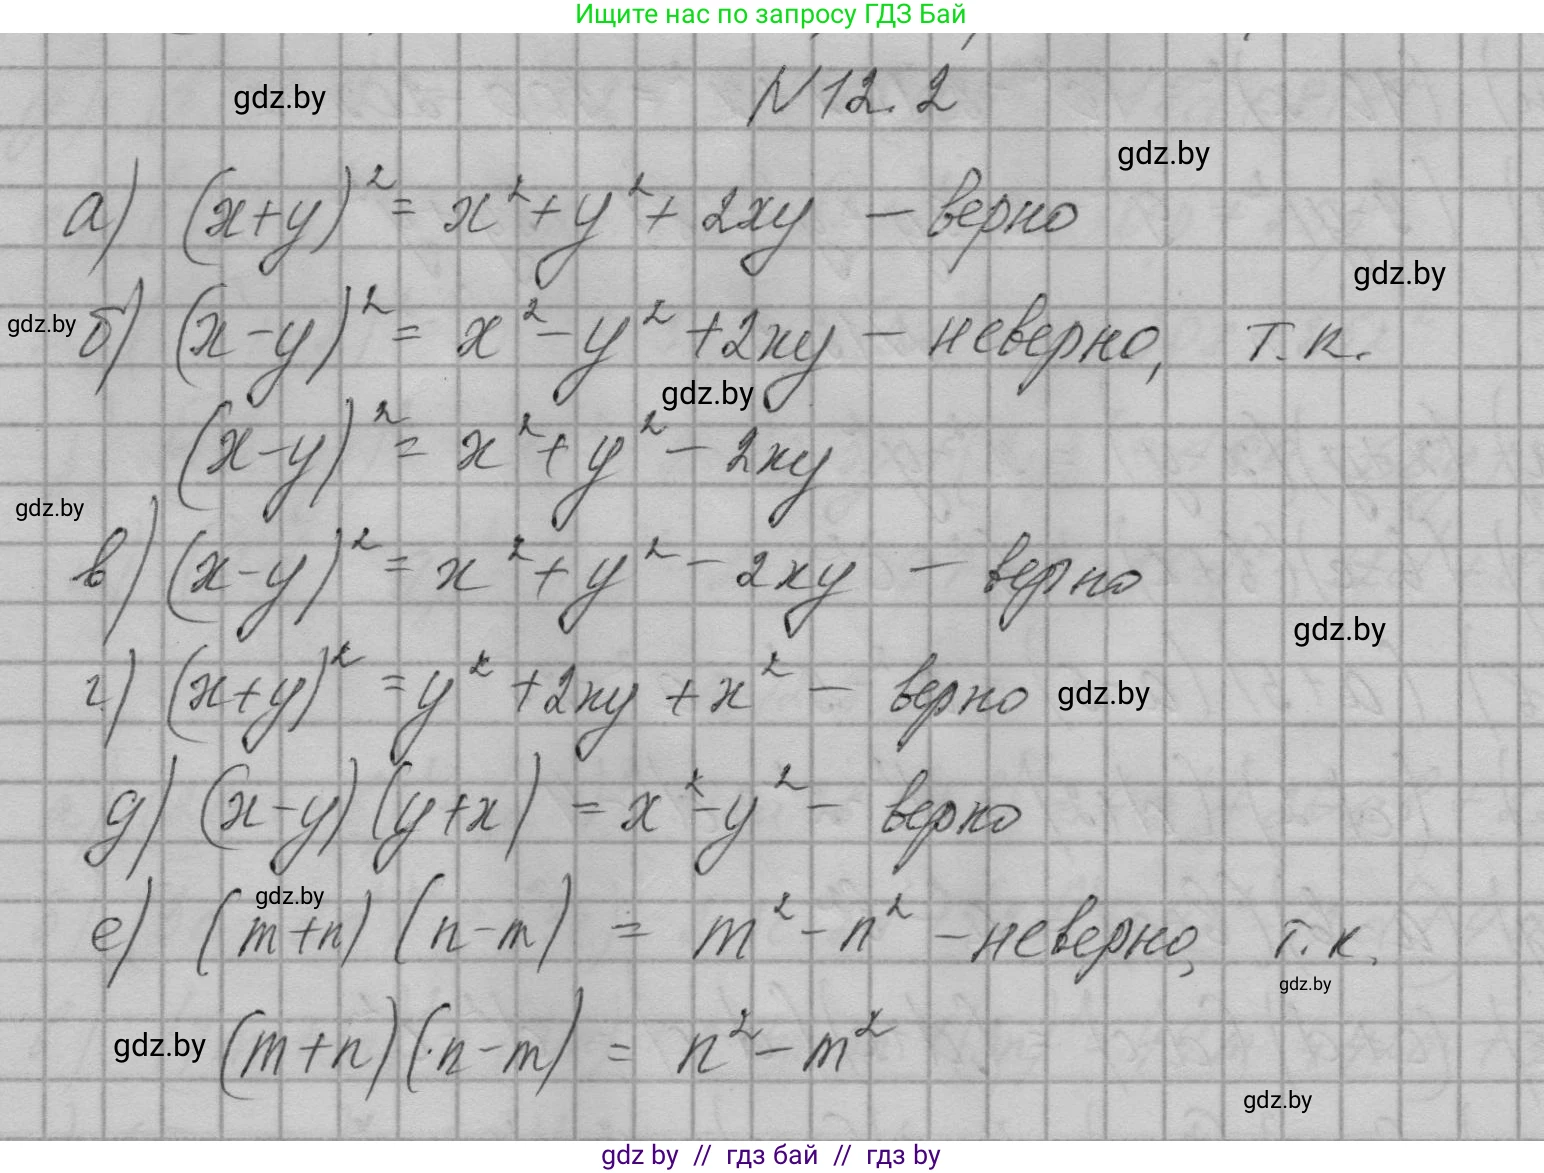 Ищите нас по запросу ГДЗ Бай
N12.2
gdz.by
gdz.by
а) (x+y)² = x² + y² + 2xy – верно
gdz.by
gdz.by
б) (x-y)² = x² - y² + 2xy – неверно, т.к.
gdz.by
(x-y)² = x² + y² - 2xy
gdz.by
в) (x-y)² = x² + y² - 2xy – верно
gdz.by
г) (x+y)² = y² + 2xy + x² – верно
gdz.by
д) (x-y)(y+x) = x² - y² – верно
gdz.by
е) (m+n)(n-m) = m² - n² – неверно, т.к.
gdz.by
gdz.by
(m+n)(n-m) = n² - m²
gdz.by
gdz by // гдз бай // гдз by